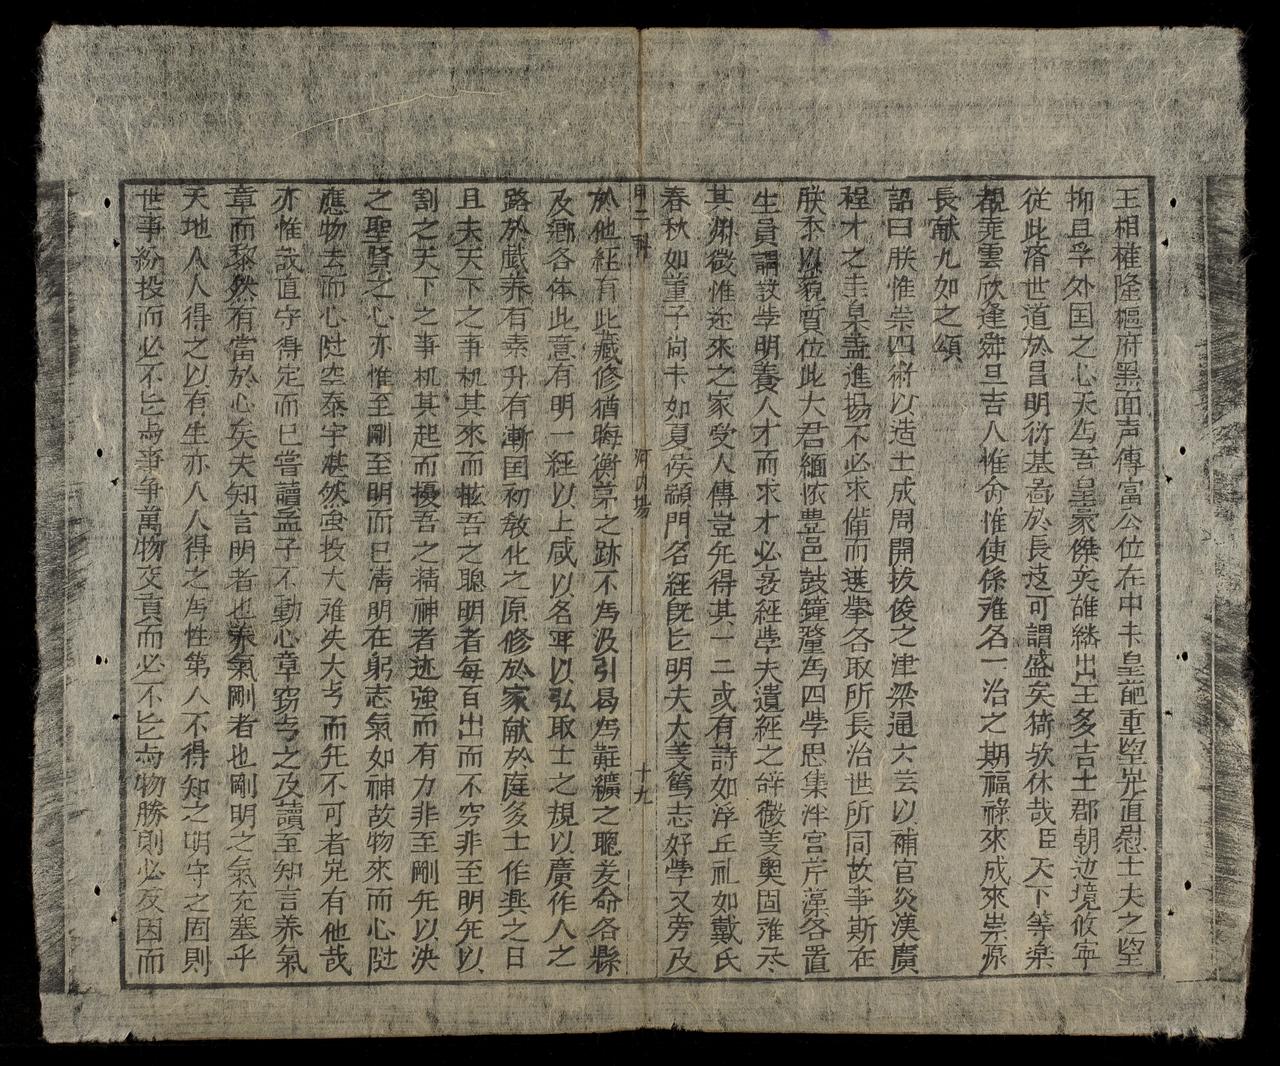 王相權隆樞府黑面声傳富公位在中未皇葩重望光直慰士夫之望
抑且孚外国之心天為吾皇家傑英雄继出王多吉士郡朝边境攸寧
從此済世道於昌明衍基啚於長遠可謂盛矣猗欤休哉臣天下等楽
覩乘雲欣逢弼旦吉人惟侖惟使係难名一治之期福祿來成來崇源
長献九如之頌
詔曰朕惟崇四術以造士成周開拔俊之津梁通六芸以補官炎漢廣
程才之圭臬盖進揚不必求備而選舉各取所長治世所同故事斯在
朕忝以藐質位此大君緬懷豊邑鼓鐘釐為四斈思集泮宮芹藻各置
生員謂設斈明養人才而求才必夛經斈夫遺經之辞微羙奥固难尽
其渊微惟迩來之家受人傳豈旡得其一二或有詩如浮丘礼如戴氏
春秋如董子尚未如夏侯顓門名經旣匕明夫大羙篤志好斈又旁及
甲二科 河内場 十九
於他經有此藏修猶晦衡茅之跡不為汲引曷為黈纊之聰爰命各縣
及鄉各体此意有明一經以上咸以名平以弘取士之規以廣作人之
路於戲养有素升有漸国初敎化之原修於家献於庭多士作興之日
且夫天下之事机其來而眩吾之聰明者每百出而不穷非至明旡以
割之天下之事机其起而擾吾之精神者迹強而有力非至剛旡以決
之聖賢之心亦惟至剛至明而已清明在躬志氣如神故物來而心
應物去而心 空泰宇湛然虽投大难失大 而旡不可者完有他哉
亦惟哉直守得定而已嘗讀孟子不動心章窃 之及讀至知言养氣
章而黎然有當於心矣夫知言明者也养氣剛者也剛明之氣充塞乎
天地人人得之以有生亦人人得之為性第人不得知之明守之固則
世事紛投而必不匕為事争萬物交貢而必不匕為物勝則必反因而